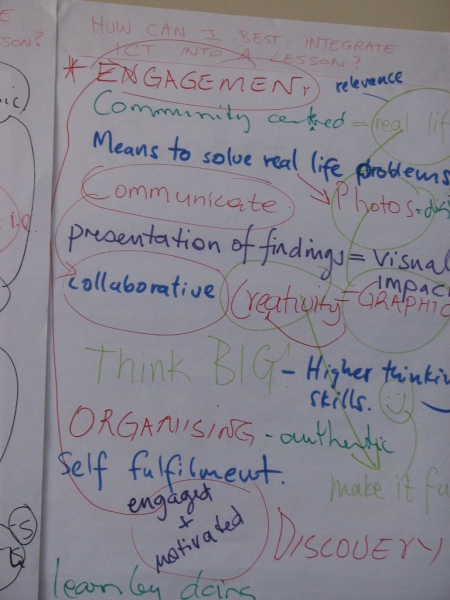 HOW CAN I BEST INTEGRATE
ICT INTO A LESSON?
SSON?
* ENGAGEMENT
relevance
Community centred = real lif
Means to solve real life problems
Communicate
Photos =
i.e.
presentation of findings = Visual
impac
collaborative
Creativity = GRAPHIC
Think BIG! - Higher thinkin
skills.
ORGANISING - authentic
Self fulfilment.
make it fu
engaged
+
motivated
DISCOVERY
learn by doing